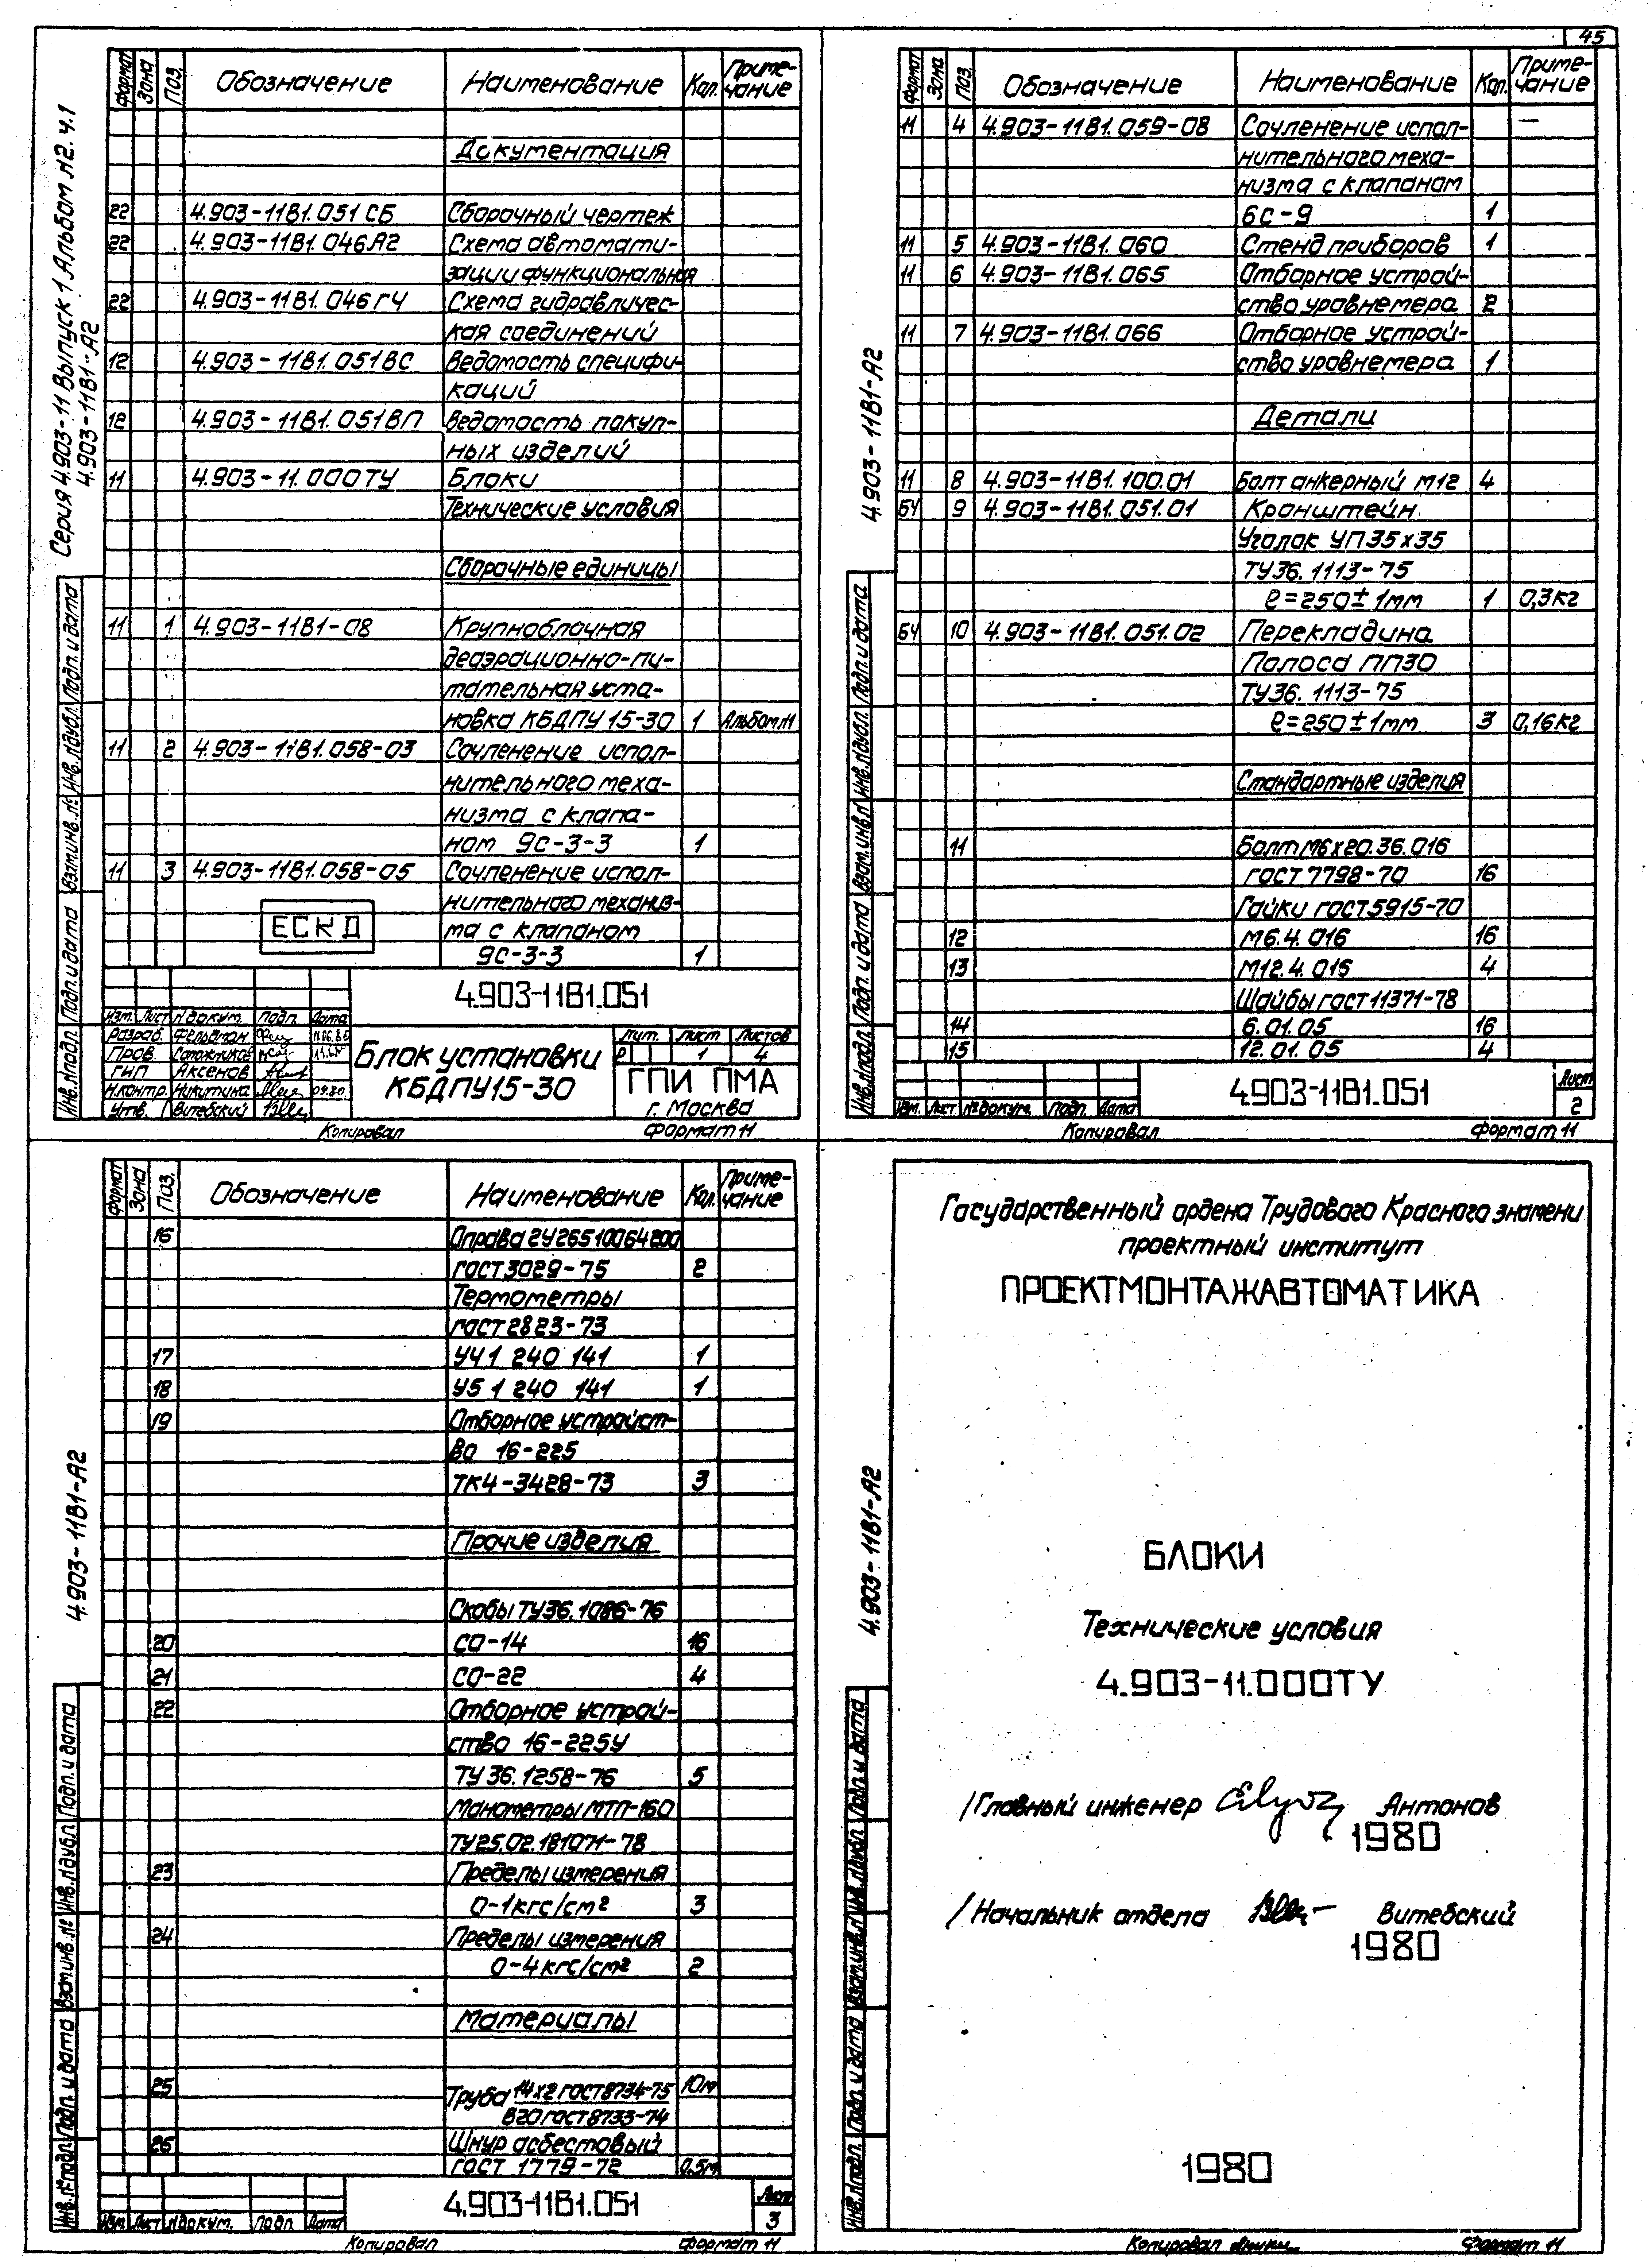 45
Серия 4.903-11 Выпуск 1 Альбом №2. ч.1
4.903-11В1-А2
Формат Зона Поз. Обозначение Наименование Кол. Приме-
чание
Документация
22 4.903-11В1.051 СБ Сборочный чертеж
22 4.903-11В1.046А2 Схема автомати-
зации функциональная
22 4.903-11В1.046ГЧ Схема гидравличес-
кая соединений
12 4.903-11В1.051ВС Ведомость специфи-
каций
12 4.903-11В1.051ВП Ведомость покуп-
ных изделий
11 4.903-11.000ТУ Блоки
Технические условия
Сборочные единицы
11 1 4.903-11В1-08 Крупноблочная
деаэрационно-пи-
тательная уста-
новка КБДПУ 15-30 1 Альбом №1
11 2 4.903-11В1.058-03 Сочленение испол-
нительного меха-
низма с клапа-
ном 9с-3-3 1
11 3 4.903-11В1.058-05 Сочленение испол-
нительного механиз-
ма с клапаном
9с-3-3 1
ЕСКД
4.903-11В1.051
Изм. Лист № докум. Подп. Дата
Разраб. Фельдман
Пров. Сапожников
ГИП Аксенов
Н.контр. Никитина 09.80
Утв. Витебский
Блок установки
КБДПУ15-30
Лит. Лист Листов
Р 1 4
ГПИ ПМА
г. Москва
Инв.№подл. Подп. и дата Взам.инв.№ Инв.№дубл. Подп. и дата
Копировал Формат 11
4.903-11В1-А2
Формат Зона Поз. Обозначение Наименование Кол. Приме-
чание
11 4 4.903-11В1.059-08 Сочленение испол- —
нительного меха-
низма с клапаном
6с-9 1
11 5 4.903-11В1.060 Стенд приборов 1
11 6 4.903-11В1.065 Отборное устрой-
ство уровнемера 2
11 7 4.903-11В1.066 Отборное устрой-
ство уровнемера 1
Детали
11 8 4.903-11В1.100.01 Болт анкерный М12 4
БЧ 9 4.903-11В1.051.01 Кронштейн
Уголок УП35х35
ТУ36.1113-75
ℓ=250±1мм 1 0,3кг
БЧ 10 4.903-11В1.051.02 Перекладина
Полоса ПП30
ТУ36.1113-75
ℓ=250±1мм 3 0,16кг
Стандартные изделия
11 Болт М6х20.36.016
ГОСТ 7798-70 16
Гайки ГОСТ5915-70
12 М6.4.016 16
13 М12.4.015 4
Шайбы ГОСТ11371-78
14 6.01.05 16
15 12.01.05 4
4.903-11В1.051
Лист
2
Изм. Лист № докум. Подп. Дата
Инв.№подл. Подп. и дата Взам.инв.№ Инв.№дубл. Подп. и дата
Копировал Формат 11
4.903-11В1-А2
Формат Зона Поз. Обозначение Наименование Кол. Приме-
чание
16 Оправа 2У26510064200
ГОСТ 3029-75 2
Термометры
ГОСТ 2823-73
17 УЧ 1 240 141 1
18 У5 1 240 141 1
19 Отборное устройст-
во 16-225
ТК4-3428-73 3
Прочие изделия
Скобы ТУ36.1086-76
20 СО-14 16
21 СО-22 4
22 Отборное устрой-
ство 16-225У
ТУ 36.1258-76 5
Манометры МТП-160
ТУ25.02.181071-78
23 Пределы измерения
0-1кгс/см² 3
24 Пределы измерения
0-4кгс/см² 2
Материалы
25 Труба 14х2 ГОСТ8734-75 10м
В20 ГОСТ8733-74
26 Шнур асбестовый
ГОСТ 1779-72 0,5м
4.903-11В1.051
Лист
3
Изм. Лист № докум. Подп. Дата
Инв.№подл. Подп. и дата Взам.инв.№ Инв.№дубл. Подп. и дата
Копировал Формат 11
4.903-11В1-А2
Государственный ордена Трудового Красного знамени
проектный институт
ПРОЕКТМОНТАЖАВТОМАТИКА
БЛОКИ
Технические условия
4.903-11.000ТУ
/Главный инженер Антонов
1980
/Начальник отдела Витебский
1980
1980
Инв.№подл. Подп. и дата Взам.инв.№ Инв.№дубл. Подп. и дата
Копировал Формат 11